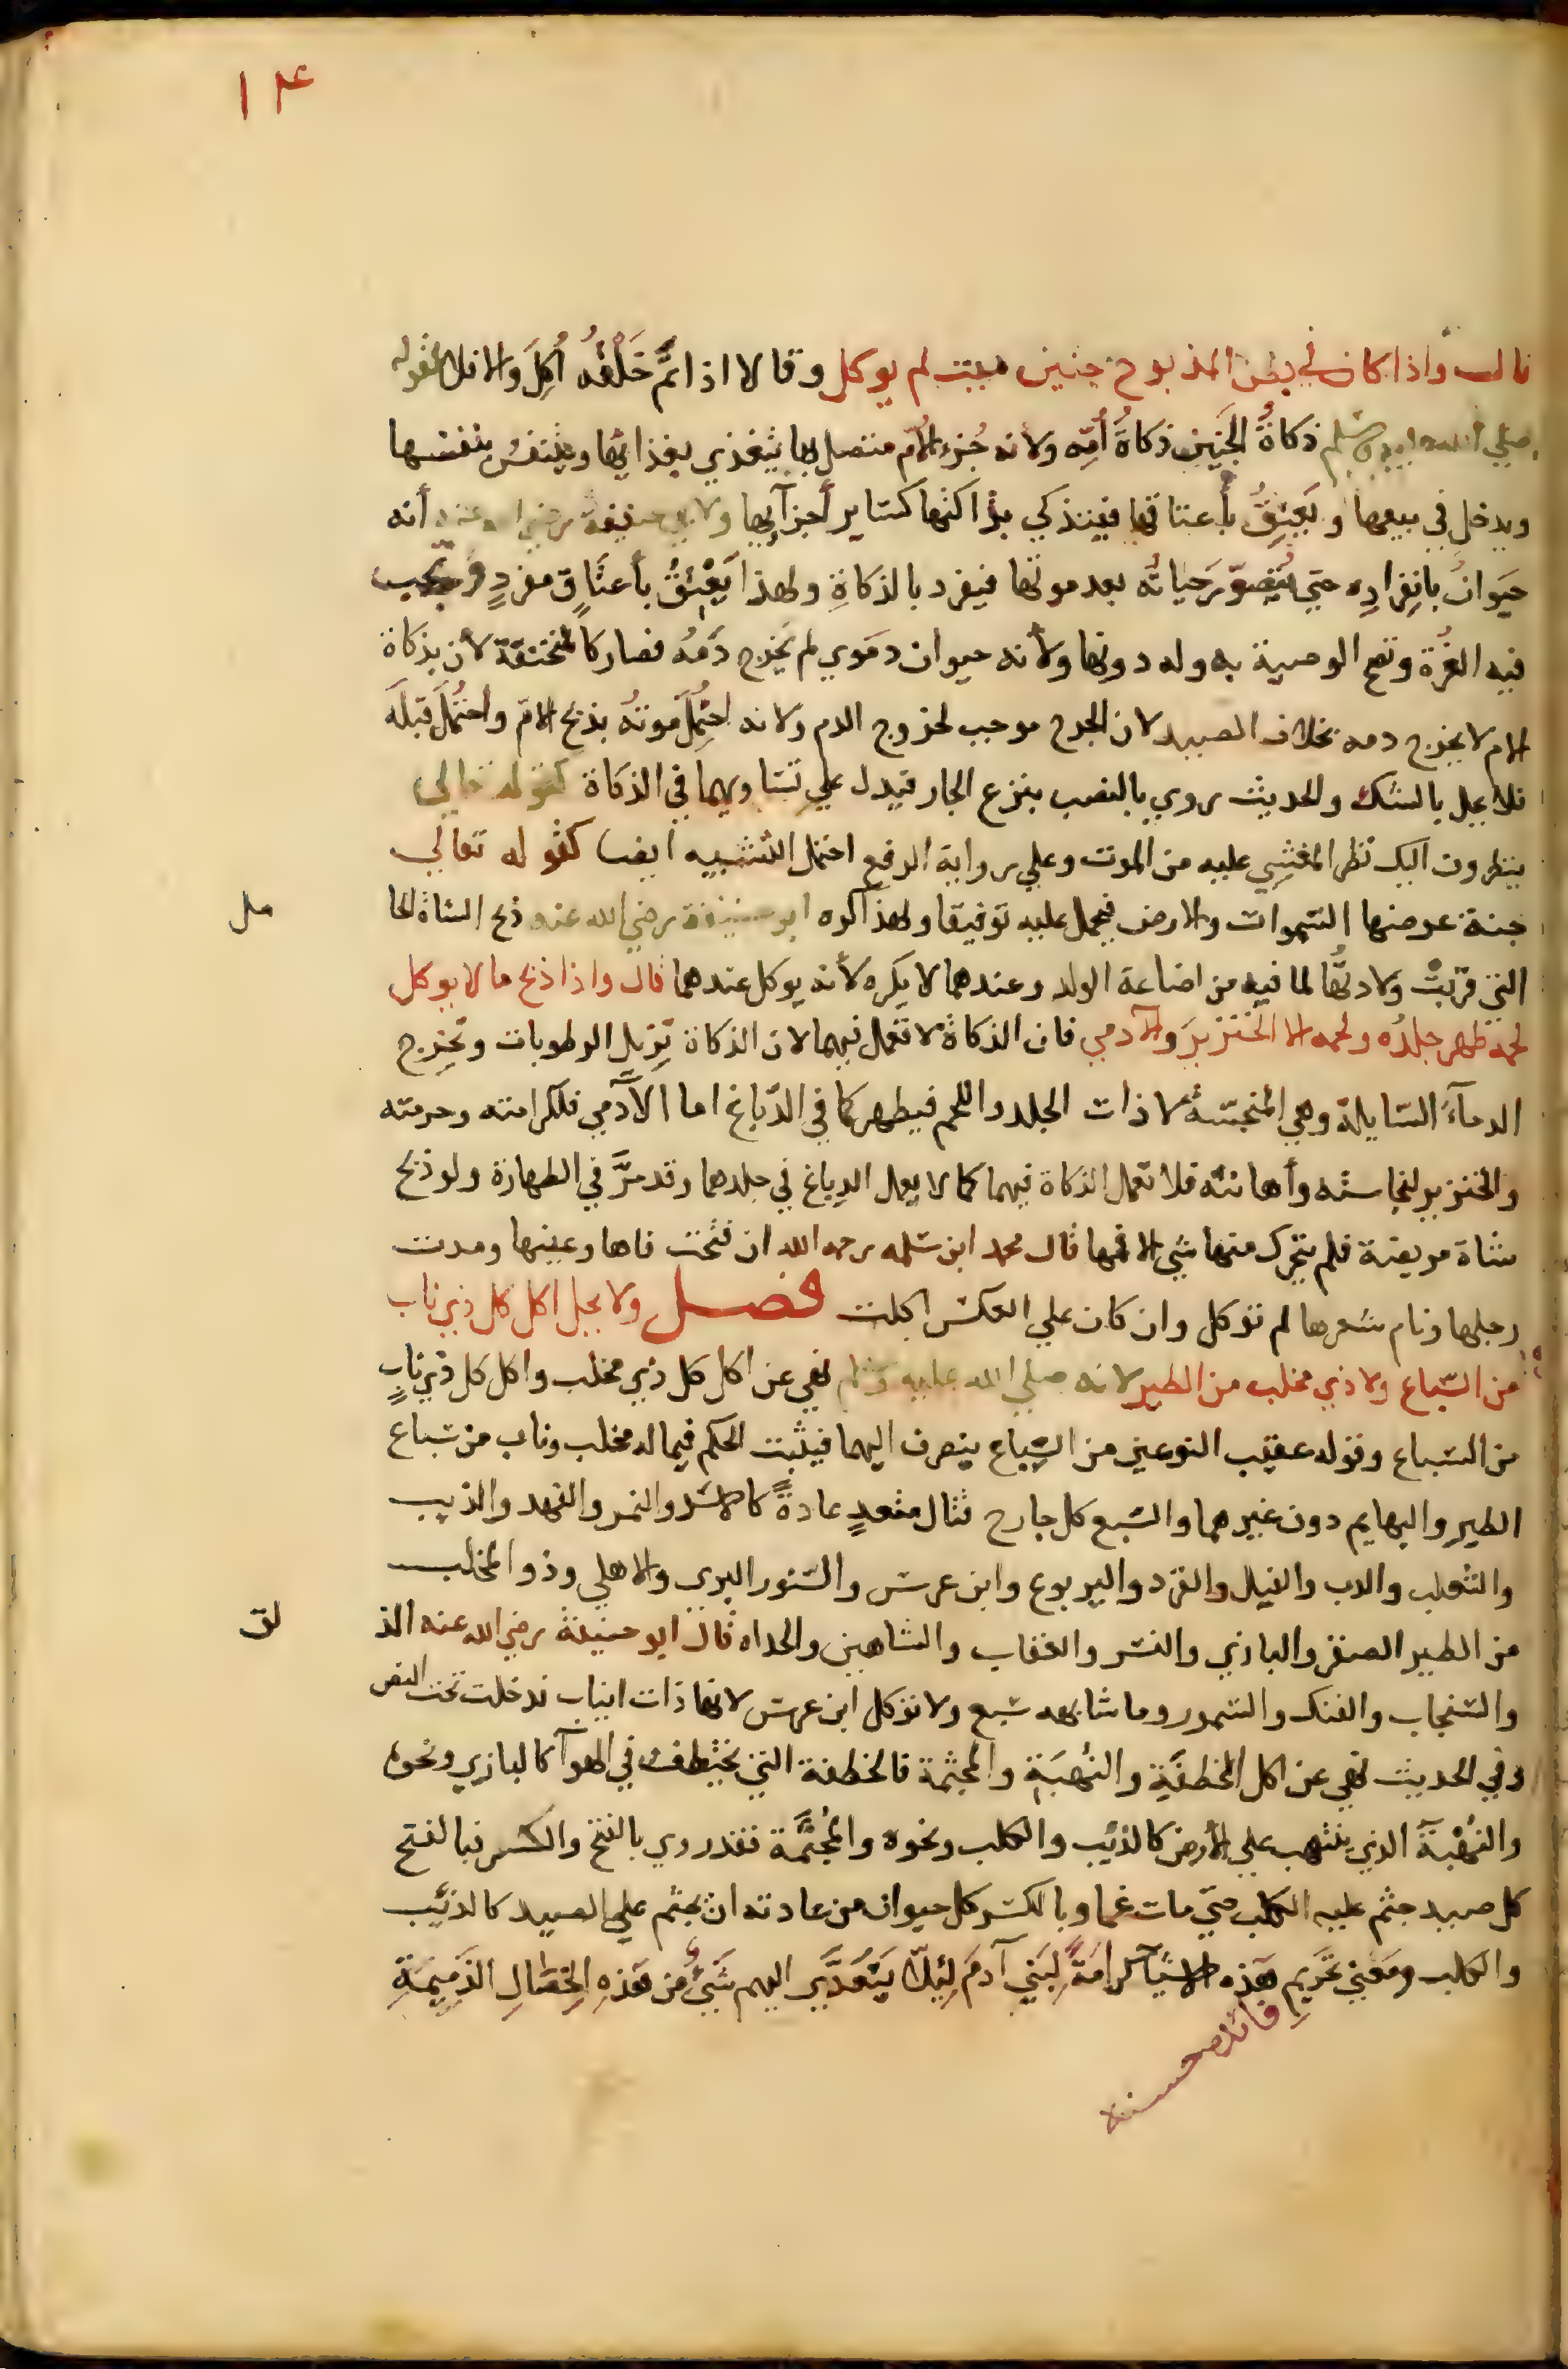 ١٤
قال واذا كان في بطن المذبوح جنين ميت لم يوكل وقالا اذا تم خَلْقُه أُكِلَ والا فلا لقوله
صلي الله عليه وسلم ذكاةُ الجَنِين ذكاةُ أُمِّه ولانه جُزء الأم متصل بها يتغذي بغذائها ويتنفس بنفسها
ويدخل في بيعها ويَعْتِقُ بأعتاقها فيتذكي بذاكتها كساير أجزآيها ولابي حنيفة رضي الله عنه أنه
حيَوان بانفِرادِه حتي يُتصوّر حَياتُه بعد موتها فيفرد بالذكاةِ ولهذا يَعْتِقُ بأعتاقٍ مفردٍ وتجب
فيه الغُرة وتصح الوصية به وله دونها ولأنه حيوان دمَوي لم يَخرج دَمُه فصار كالمنخنقة لأن بذكاة
الام لا يخرج دمه بخلاف الصيد لان الجرح موجب لخروج الدم ولانه احتُمِلَ موتهُ بذبح الام واحتُمل قبلَه
فلا يحل بالشك والحديث روي بالنصب بنزع الجار فيدل علي تساويهما في الذكاة كقوله تعالي
ينظرون اليك نظر المغشي عليه من الموت وعلي رواية الرفع احتمل التشبيه ايضا كقوله تعالي
جنة عرضها السموات والارض فيحمل عليه توفيقا ولهذا كره ابو حنيفة رضي الله عنه ذبح الشاة الحا
مل
التي قربتْ ولادتُها لما فيه من اضاعة الولد وعندهما لا يكره لأنه يوكل عندهما قال واذا ذبح ما لا يوكل
لحمه طهر جلدُه ولحمه الا الخنزيرَ والآدمي فان الذكاة لا تعمل فيهما لان الذكاة تزيل الرطوبات وتخرج
الدمآءَ السايلة وهي المنجسة لا ذات الجلد واللحم فيطهر كما في الدّباغ اما الآدَمي فلكرامته وحرمته
والخنزير لنجاسته وأهانته فلا تعمل الذكاة فيهما كما لا يعمل الدباغ في جلدهما وقد مرَّ في الطهارة ولو ذبح
شاة مريضة فلم يتحرك منها شي الا فمها قال محمد ابن سلمه رحمه الله ان فتحت فاها وعينها ومدت
رجلها ونام شعرها لم توكل وان كان علي العكس اكلت فصل ولا يحل اكل كل ذي ناب
من السّباع ولا ذي مخلب من الطير لانه صلي الله عليه وسلم نهي عن اكل كل ذي مخلب واكل كل ذي نابٍ
من السباع وقوله عقيب النوعين من السِّباع ينصرف اليهما فيثبت الحكم فيما له مخلب وناب من سباع
الطيرِ والبهايم دون غيرهما والسّبع كل جارح قتال متعدٍ عادةً كالاسد والنمر والفهد والذيب
والثعلب والدب والفيل والقرد واليربوع وابن عرس والسّنور البري والاهلي وذو المخلب
من الطير الصقر والبازي والنسر والعقاب والشاهين والحداه قال ابو حنيفة رضي الله عنه الد
لق
والسّنجاب والفنك والسّمور وما شابهه سَبع ولا توكل ابن عرس لانها ذات انياب فدخلت تحت النص
وفي الحديث نهي عن اكل الخطفَةِ والنُهبَةِ والمجثمة فالخطفة التي يختطف في الهوآ كالبازي ونحوه
والنُهْبَة الذي ينتهب علي الأرض كالذئب والكلب ونحوه والمُجَثَّمة فقد روي بالفتح والكسر فبالفتح
كل صيد جثم عليه الكلب حتي مات غما وبالكسر كل حيوان من عادته ان يجثم علي الصيد كالذئب
والكلب ومَعني تحريمِ هَذه الاشيآ كرامَةً لِبَني آدمَ لِئلّا يَتعَدَّي اليهم شَيْءٌ من هَذهِ الخِصَالِ الذَمِيمَةِ
فائدة حسنة